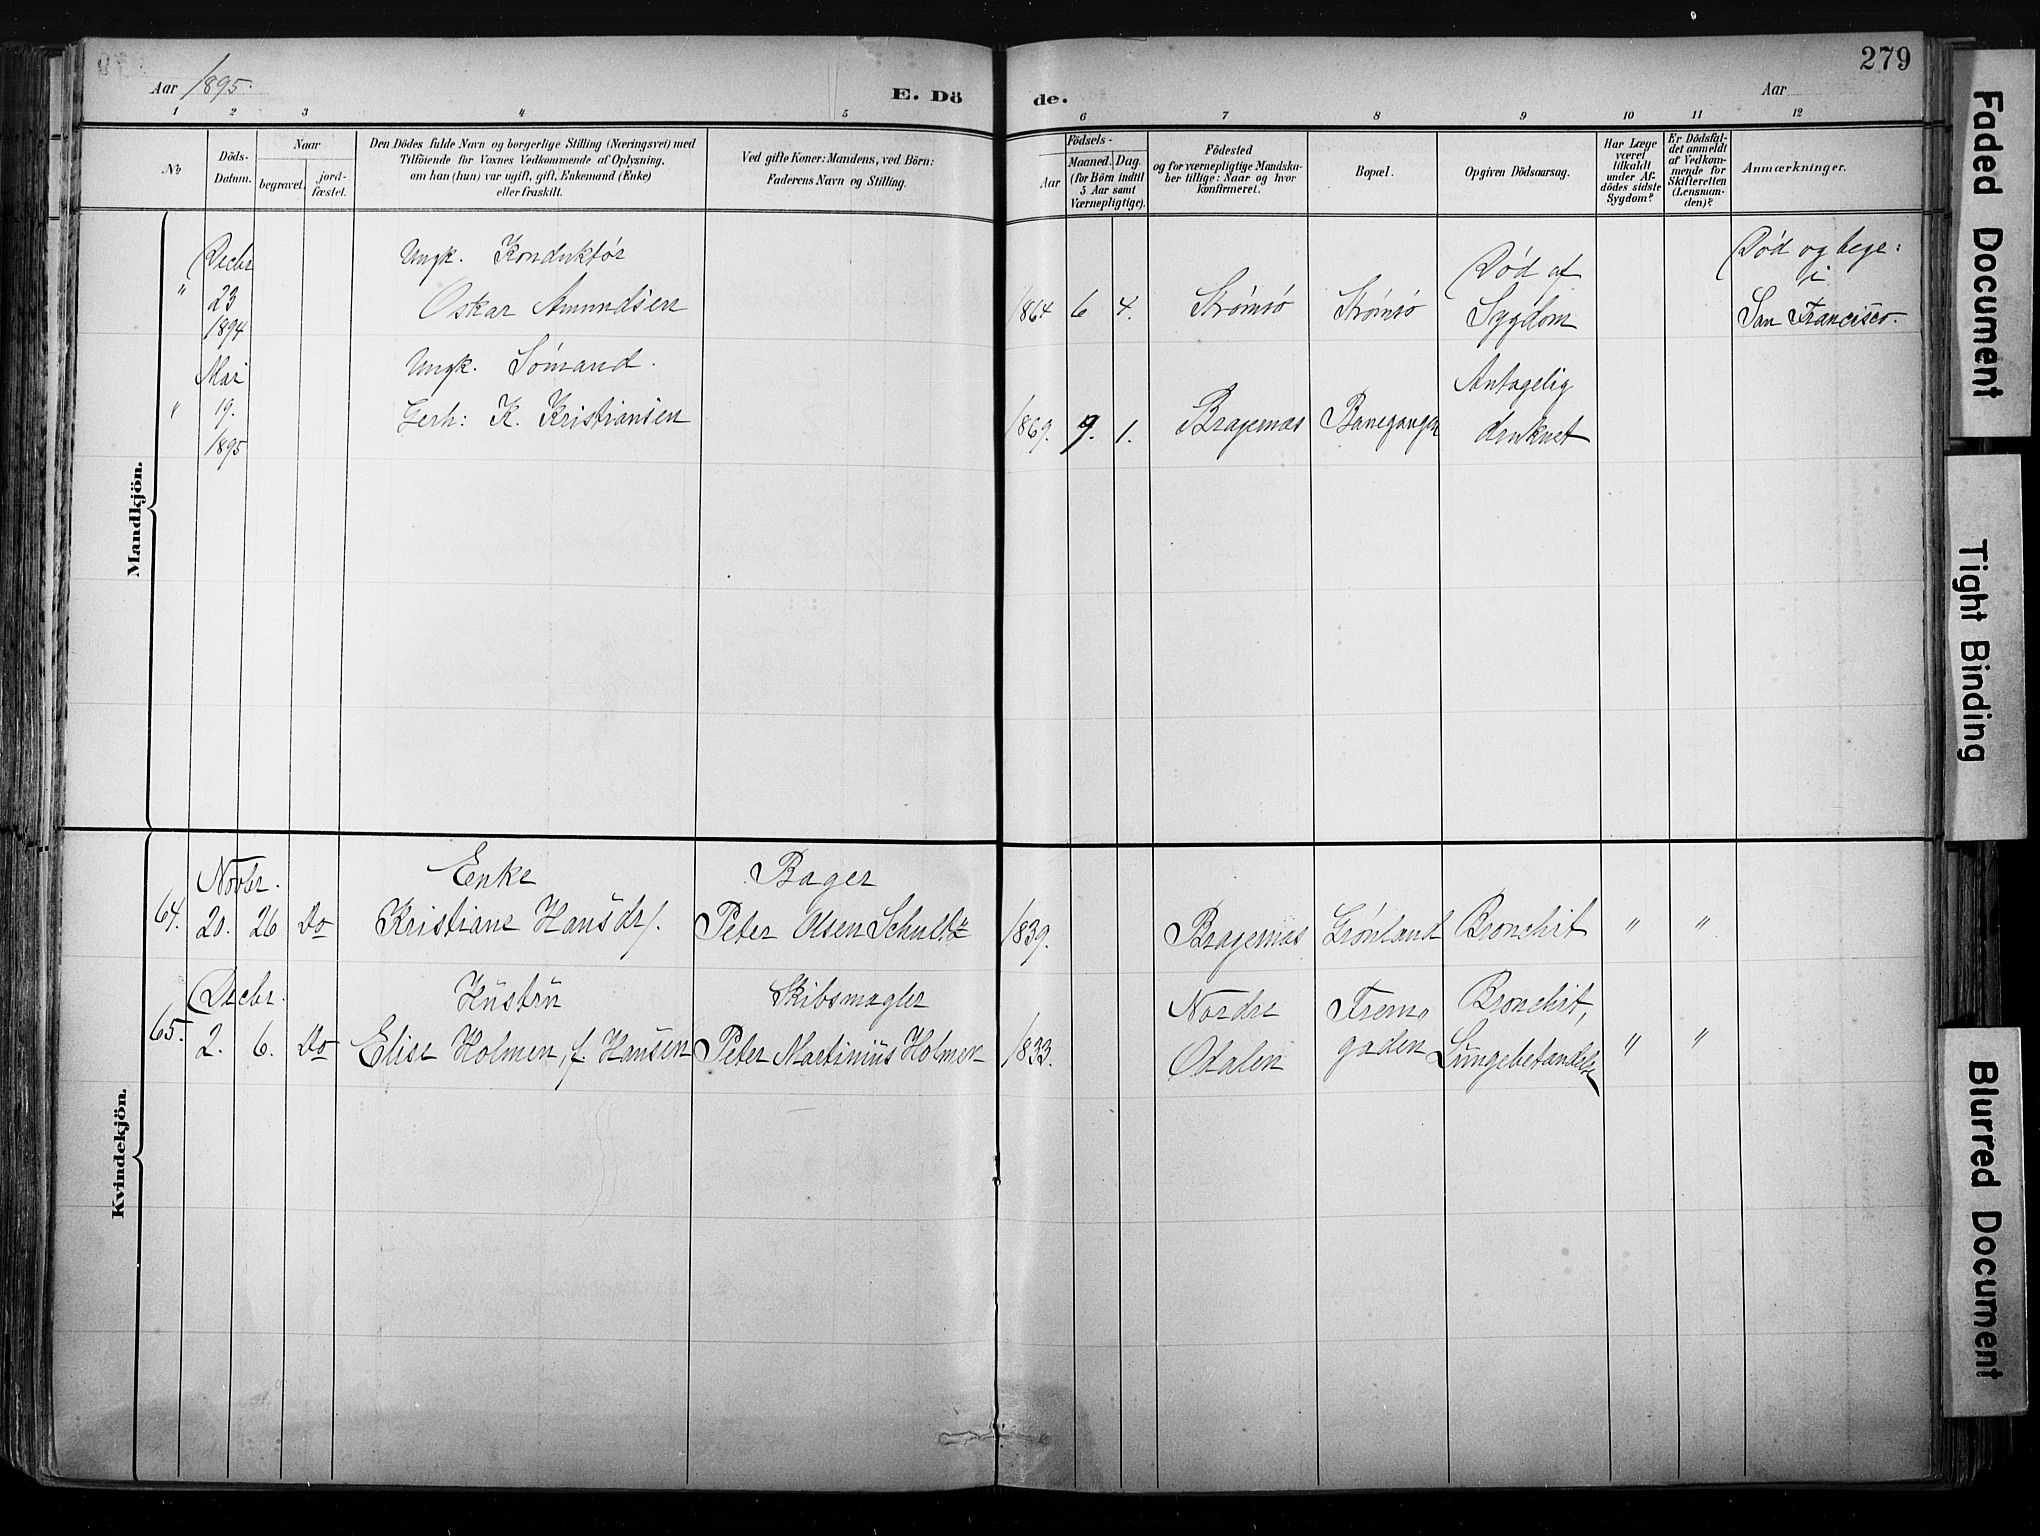 279
Aar 1895.
E. Dö
de.
Aar
1 2 3 4 5 6 7 8 9 10 11 12
No
Döds-
Datum.
Naar
begravet.
jord-
fæstet.
Den Dödes fulde Navn og borgerlige Stilling (Næringsvei) med
Tilföiende for Voxnes Vedkommende af Oplysning,
om han (hun) var ugift, gift, Enkemand (Enke)
eller fraskilt.
Ved gifte Koner: Mandens, ved Börn:
Faderens Navn og Stilling.
Födsels-
Aar
Maaned. Dag.
(for Börn indtil
5 Aar samt
Værnepligtige).
Födested
og for værnepligtige Mandska-
ber tillige: Naar og hvor
konfirmeret.
Bopæl.
Opgiven Dödsaarsag.
Har Læge
været
tilkaldt
under Af-
dödes sidste
Sygdom?
Er Dödsfal-
det anmeldt
af Vedkom-
mende for
Skifteretten
(Lensman-
den)?
Anmærkninger.
Mandkjön.
Decbr Ungk. Konduktör Död af Död og begr:
" 23 Oskar Amundsen 1864 6 4. Strömsö Strömsö Sygdom i
1894 San Francisco.
Mai Ungk. Sömand. Antagelig
" 19. Gerh: K. Kristiansen 1869. 9. 1. Bragernæs Banegangen druknet
1895
Kvindekjön.
Novbr. Enke Bager
64. 20. 26 Do Kristiane Hansdr/. Peter Olsen Schultz 1839. Bragernæs Grönland Bronchit " "
Decbr. Hustru Skibsmægler Nordre Trem- Bronchit,
65. 2. 6. Do Elise Holmen f. Hansen Peter Martinius Holmen 1833. Odalen gaden Lungebetændelse " "
Faded Document
Tight Binding
Blurred Document